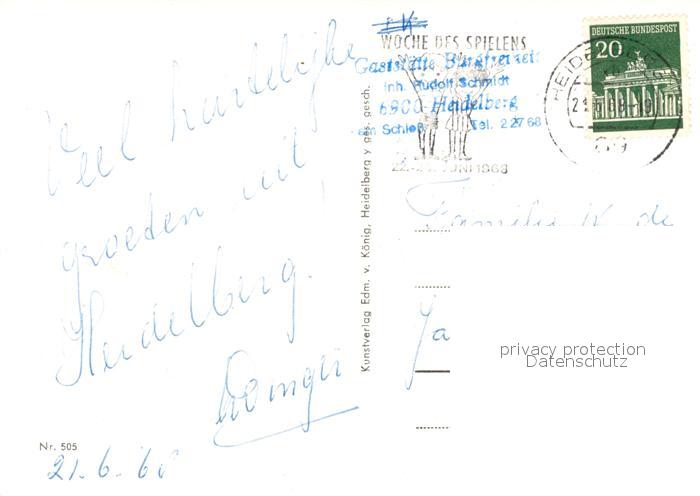 Veel hartelijke
groeten uit
Heidelberg.
Nr. 505
21.6.68
Kunstverlag Edm. v. König, Heidelberg y ges. gesch.
WOCHE DES SPIELENS
Gaststätte Burgfreiheit
Inh. Rudolf Schmidt
6900 Heidelberg
am Schloß Tel. 22768
JUNI 1968
DEUTSCHE BUNDESPOST
20
HEIDE
Familie W de
Ja
privacy protection
Datenschutz